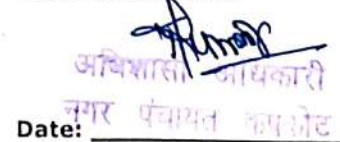 अधिशासी अधिकारी
नगर पंचायत कपकोट
Date: